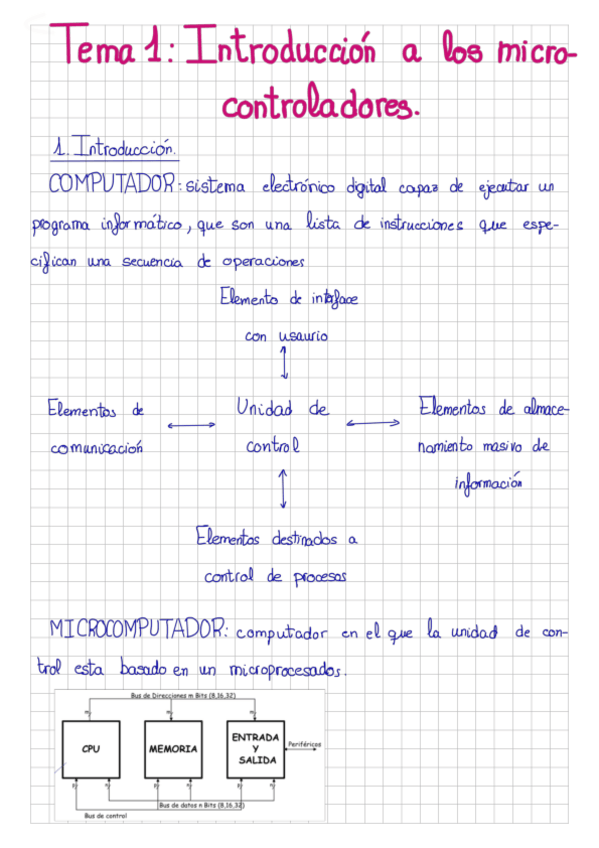 Tema 1: Introducción a los micro-
controladores.
1. Introducción.
COMPUTADOR: sistema electrónico digital capaz de ejecutar un
programa informático, que son una lista de instrucciones que espe-
cifican una secuencia de operaciones
Elemento de interface
con usaurio
Elementos de comunicación
Unidad de control
Elementos de almace-
namiento masivo de
información
Elementos destinados a
control de procesos
MICROCOMPUTADOR: computador en el que la unidad de con-
trol esta basado en un microprocesados.
Bus de Direcciones m Bits (8,16,32)
CPU
MEMORIA
ENTRADA
Y
SALIDA
Periféricos
Bus de datos n Bits (8,16,32)
Bus de control